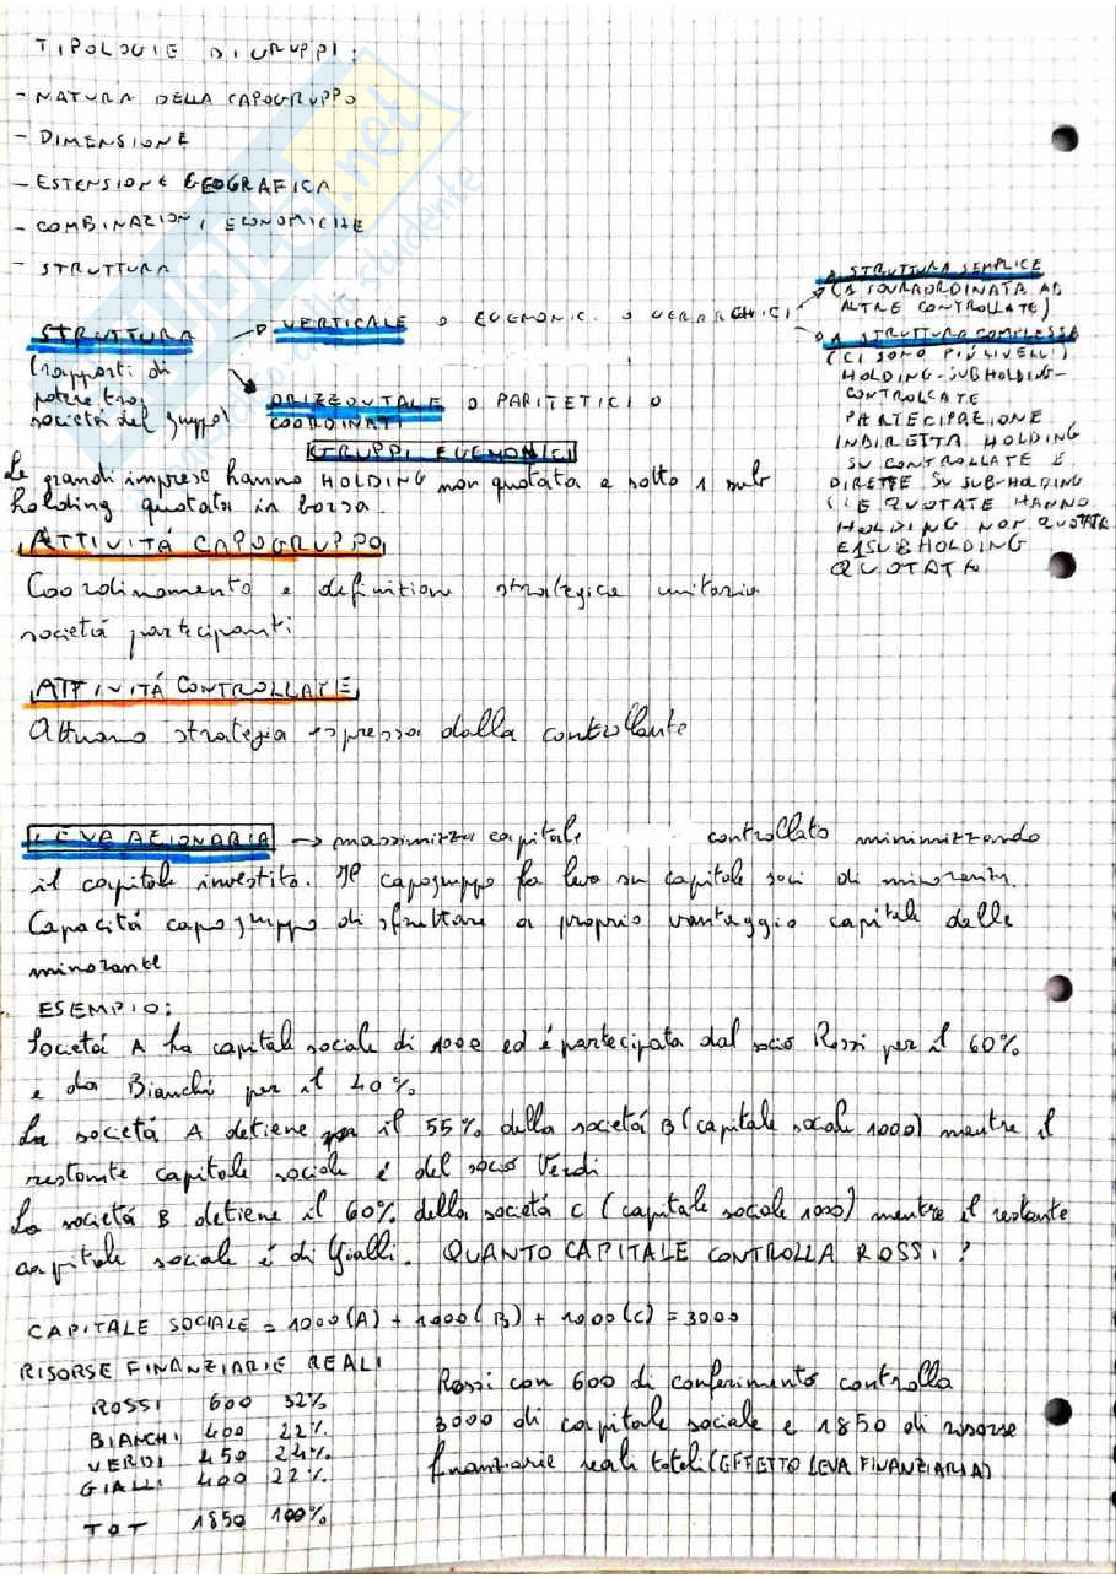 TIPOLOGIE DI GRUPPI:
- NATURA DELLA CAPOGRUPPO
- DIMENSIONE
- ESTENSIONE GEOGRAFICA
- COMBINAZIONI ECONOMICHE
- STRUTTURA
STRUTTURA
(rapporti di
potere tra
società del gruppo)
VERTICALE O EGEMONIC. O GERARCHICI
ORIZZONTALE O PARITETICI O
COORDINATI
1 STRUTTURA SEMPLICE
(1 SOVRAORDINATA AD
ALTRE CONTROLLATE)
1 STRUTTURA COMPLESSA
(CI SONO PIÚ LIVELLI)
HOLDING-SUBHOLDING-
CONTROLLATE
PARTECIPAZIONE
INDIRETTA HOLDING
SU CONTROLLATE E
DIRETTE SU SUB-HOLDING
(LE QUOTATE HANNO
HOLDING NON QUOTATE
E 1 SUBHOLDING
QUOTATA
GRUPPI EGEMONICI
Le grandi imprese hanno HOLDING non quotata e sotto 1 sub
holding quotata in borsa.
ATTIVITÁ CAPOGRUPPO
Coordinamento e definition strategica unitaria
società partecipanti
ATTIVITÁ CONTROLLATE
Attuano strategia espressa dalla controllante
LEVA AZIONARIA → massimizza capitale controllato minimizzando
il capitale investito. Il capogruppo fa leva su capitale soci di minoranza.
Capacità capogruppo di sfruttare a proprio vantaggio capitale delle
minoranze
ESEMPIO:
Società A ha capitale sociale di 1000 ed é partecipata dal socio Rossi per il 60%
e da Bianchi per il 40%
La società A detiene il 55% della società B (capitale sociale 1000) mentre il
restante capitale sociale é del socio Verdi
La società B detiene il 60% della società C (capitale sociale 1000) mentre il restante
capitale sociale é di Gialli. QUANTO CAPITALE CONTROLLA ROSSI?
CAPITALE SOCIALE = 1000(A) + 1000(B) + 1000(C) = 3000
RISORSE FINANZIARIE REALI
ROSSI 600 32%
BIANCHI 400 22%
VERDI 450 24%
GIALLI 400 22%
TOT 1850 100%
Rossi con 600 di conferimento controlla
3000 di capitale sociale e 1850 di risorse
finanziarie reali totali (EFFETTO LEVA FINANZIARIA)